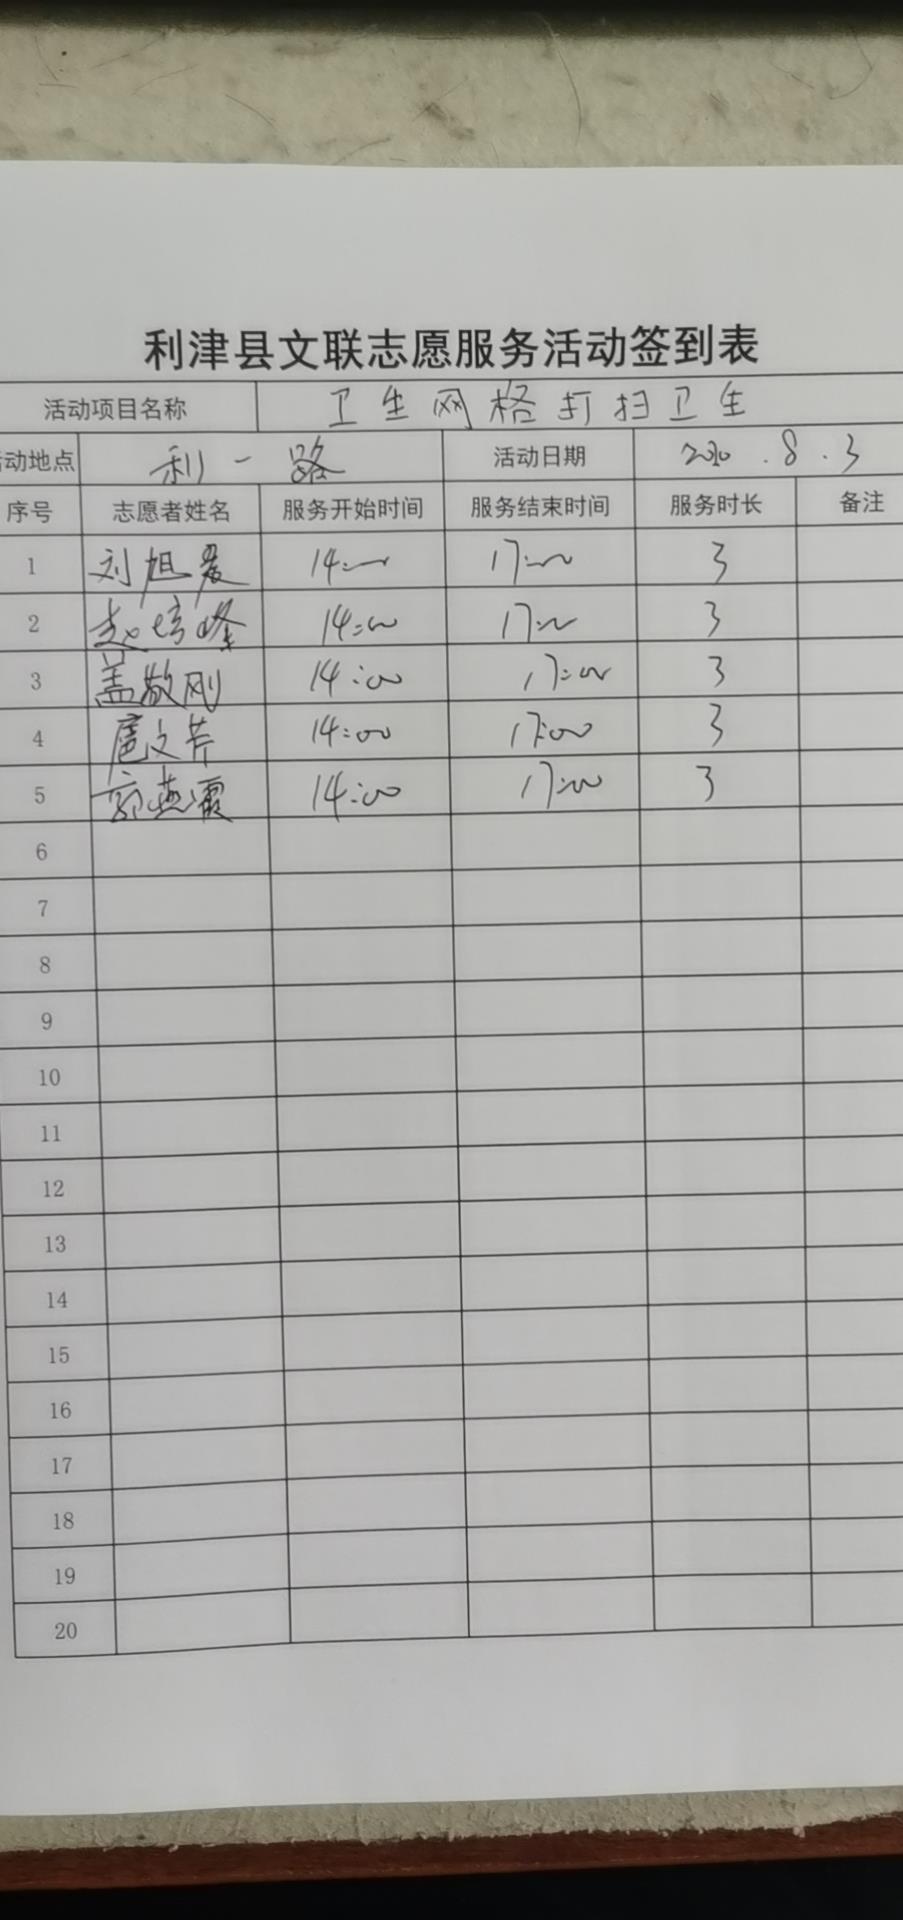 利津县文联志愿服务活动签到表
活动项目名称 卫生网格打扫卫生
动地点 利一路 活动日期 2020.8.3
序号 志愿者姓名 服务开始时间 服务结束时间 服务时长 备注
1 刘旭晨 14:00 17:00 3
2 赵培峰 14:00 17:00 3
3 盖敬刚 14:00 17:00 3
4 扈文芹 14:00 17:00 3
5 郭燕霞 14:00 17:00 3
6
7
8
9
10
11
12
13
14
15
16
17
18
19
20